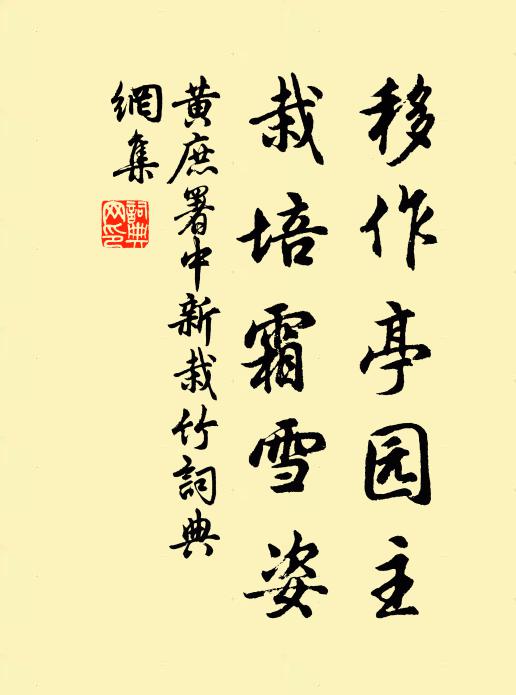 移作亭园主
栽培霜雪姿
黄庶署中新栽竹詞典
網集
詞典网印